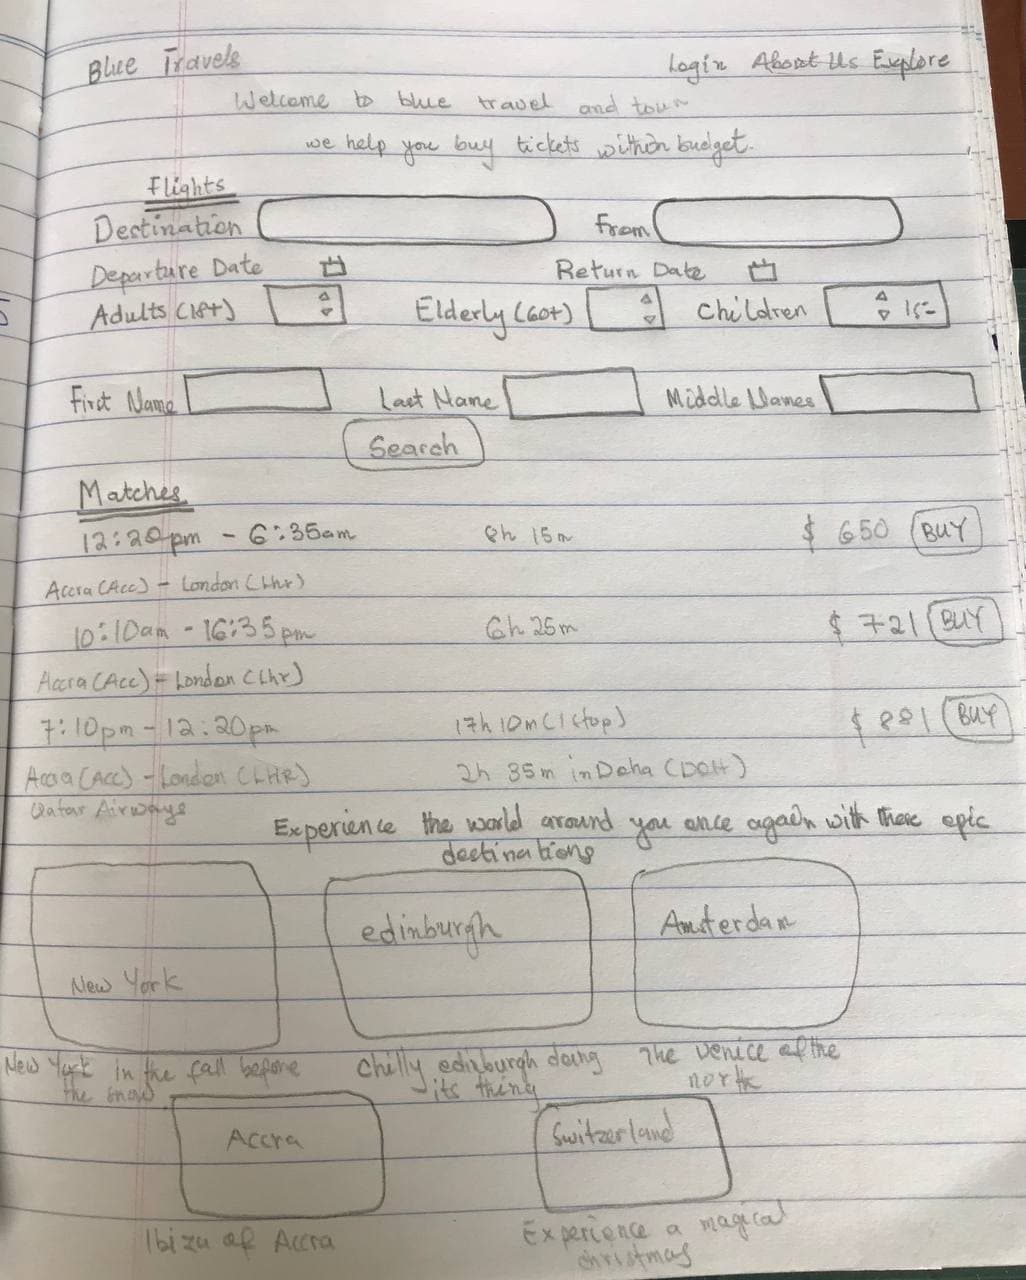 Blue Travels Login About Us Explore
Welcome to blue travel and tour
we help you buy tickets within budget.
Flights
Destination From
Departure Date Return Date
Adults (18+) Elderly (60+) Children 15-
First Name Last Name Middle Names
Search
Matches
12:20pm - 6:35am 8h 15m $ 650 BUY
Accra (Acc) - London (Lhr)
10:10am - 16:35pm 6h 25m $ 721 BUY
Accra (Acc) - London (Lhr)
7:10pm - 12:20pm 17h 10m (1 stop) $ 881 BUY
Accra (Acc) - London (LHR) 2h 35m in Doha (DOH)
Qatar Airways
Experience the world around you once again with these epic
destinations
New York edinburgh Amsterdam
New York in the fall before chilly edinburgh doing The venice of the
the snow its thing north
Accra Switzerland
Ibiza of Accra Experience a magical
christmas